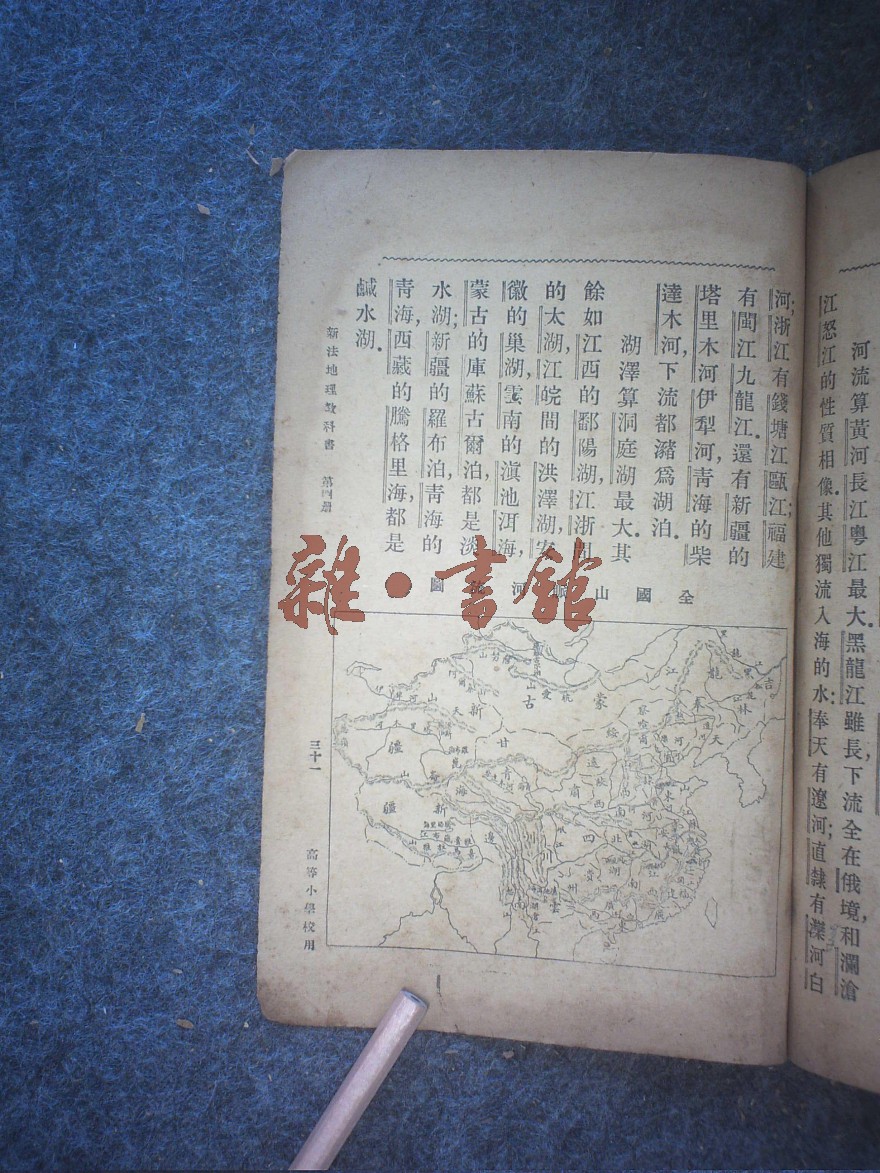 河流算黃河長江粵江最大.黑龍江雖長,下流全在俄境,和瀾滄
江怒江的性質相像.其他獨流入海的水:奉天有遼河;直隸有灤河白
河;浙江有錢塘江甌江;福建
有閩江九龍江.還有新疆的
塔里木河伊犁河,青海的柴
達木河,下流都瀦爲湖泊.
湖澤算洞庭湖最大.其
餘如江西的鄱陽湖,江浙間
的太湖,江皖間的洪澤湖,安
徽的巢湖,雲南的滇池洱海,
蒙古的庫蘇古爾泊,都是淡
水湖;新疆的羅布泊,青海的
青海,西藏的騰格里海,都是
鹹水湖.
全國山脈河流圖
新法地理教科書 第四册
三十一
高等小學校用
雜·書館
蒙
古
新
疆
甘
肅
青
海
天
山
黑
龍
江
吉
林
奉
天
綏
遠
陝
西
四
川